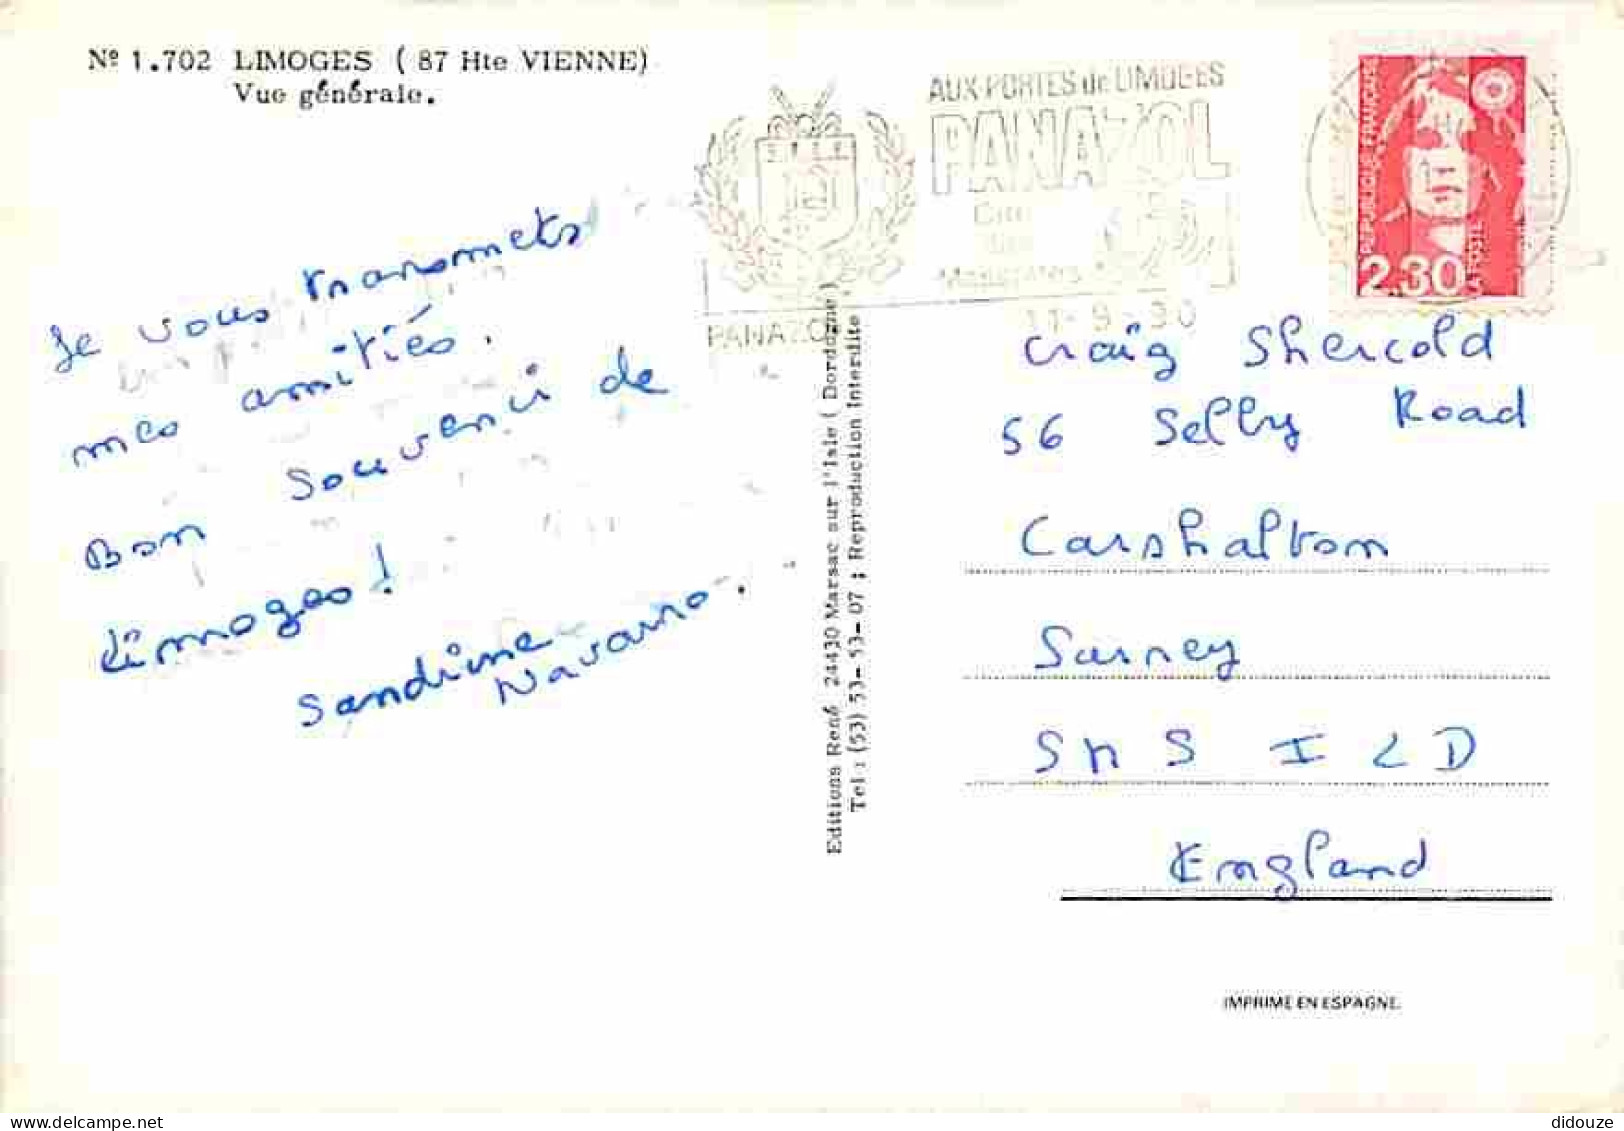 Nº 1.702 LIMOGES ( 87 Hte VIENNE)
Vue générale.
AUX PORTES de LIMOGES
PANAZOL
PANAZOL
11-9-90
REPUBLIQUE FRANÇAISE
LA POSTE
2,30
Je vous transmets
mes amitiés.
Bon souvenir de
Limoges!
Sandrine
Navarro.
Editions René 24430 Marsac sur l'Isle ( Dordogne )
Tel : (53) 53-53-07 ; Reproduction Interdite
Craig Shercold
56 Selby Road
Carshalton
Surrey
SM5 ILD
England
IMPRIMÉ EN ESPAGNE.
didouze